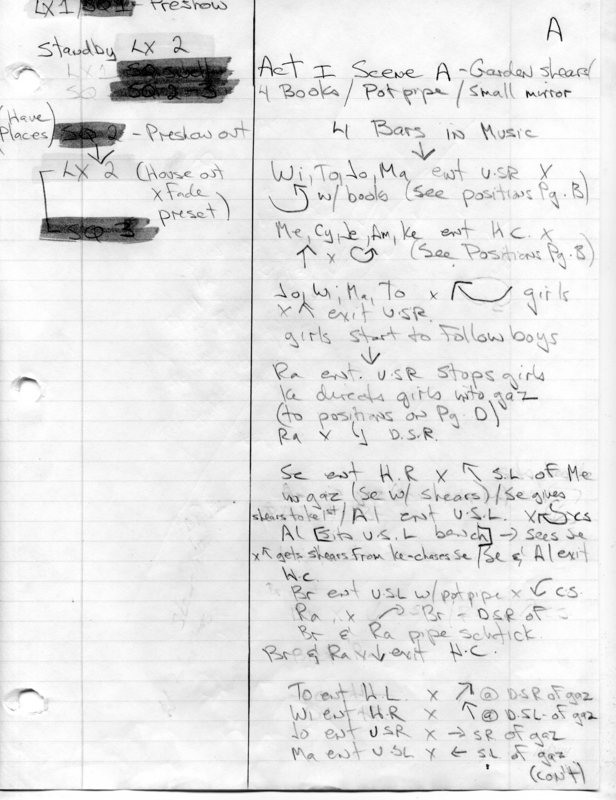 LX1/SQ1 - Preshow
A
Standby LX 2
LX1
SQ SQ 2 - 3
(Have Places) SQ 2 - Preshow out
LX 2 (House out
x Fade
preset)
SQ 3
Act I Scene A - Garden shears/
4 Books / Pot pipe / small mirror
4 Bars in Music
↓
Wi, To, Jo, Ma ent U.S.R X
w/ books (See positions Pg. B)
Me, Cy, Je, Am, Ke ent H.C. X
↑ x (See Positions Pg. B)
Jo, Wi, Ma, To x girls
x ↖ exit U.S.R.
girls start to follow boys
↓
Ra ent. U.S.R stops girls
Ke directs girls into gaz
(to positions on Pg. D)
Ra x D.S.R.
Se ent H.R X ↖ S.L of Me
in gaz (Se w/ shears)/Se gives
shears to Ke 1st/Al ent U.S.L. x CS
Al [sits U.S.L bench] → sees Se
x ↖ gets shears from Ke-chases Se/Se & Al exit
H.C.
Br ent USL w/ pot pipe x ↙ C.S.
Ra x ↗ Br - DSR of
Br & Ra pipe schtick
Br & Ra x ↓ exit H.C.
To ent H.L x ↗ @ D.SR of gaz
Wi ent H.R x ↖ @ D.SL of gaz
Jo ent USR x → SR of gaz
Ma ent USL x ← SL of gaz
(con't)